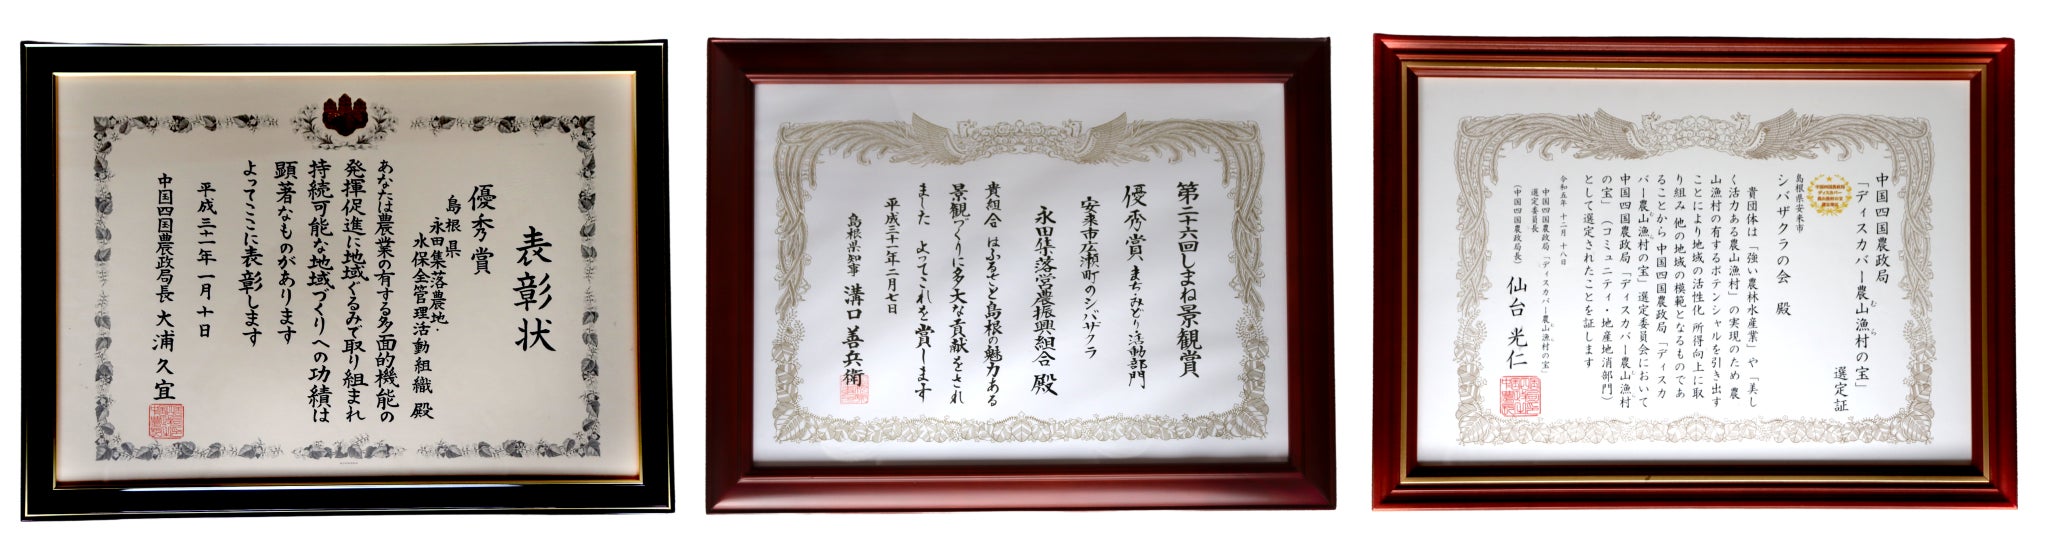 表彰状
優秀賞
島根県
永田集落農地・
水保全管理活動組織 殿
あなたは農業の有する多面的機能の
発揮促進に地域ぐるみで取り組まれ
持続可能な地域づくりへの功績は
顕著なものがあります
よってここに表彰します
平成三十一年一月十日
中国四国農政局長 大浦久宜
第二十六回しまね景観賞
優秀賞、まち・みどり活動部門
安来市広瀬町のシバザクラ
永田集落営農振興組合 殿
貴組合はふるさと島根の魅力ある
景観づくりに多大な貢献をされ
ました よってこれを賞します
平成三十一年二月七日
島根県知事 溝口善兵衛
中国四国農政局
「ディスカバー農山漁村の宝」
むら
選定証
中国四国農政局
ディスカバー
農山漁村の宝
島根県安来市
シバザクラの会 殿
貴団体は「強い農林水産業」や「美し
く活力ある農山漁村」の実現のため 農
山漁村の有するポテンシャルを引き出す
ことにより地域の活性化 所得向上に取
り組み 他の地域の模範となるものであ
ることから 中国四国農政局「ディスカ
バー農山漁村の宝」選定委員会において
中国四国農政局「ディスカバー農山漁村
の宝」（コミュニティ・地産地消部門）
として選定されたことを証します
令和五年 十二月 十八日
中国四国農政局「ディスカバー農山漁村の宝」
選定委員長
（中国四国農政局長） 仙台光仁